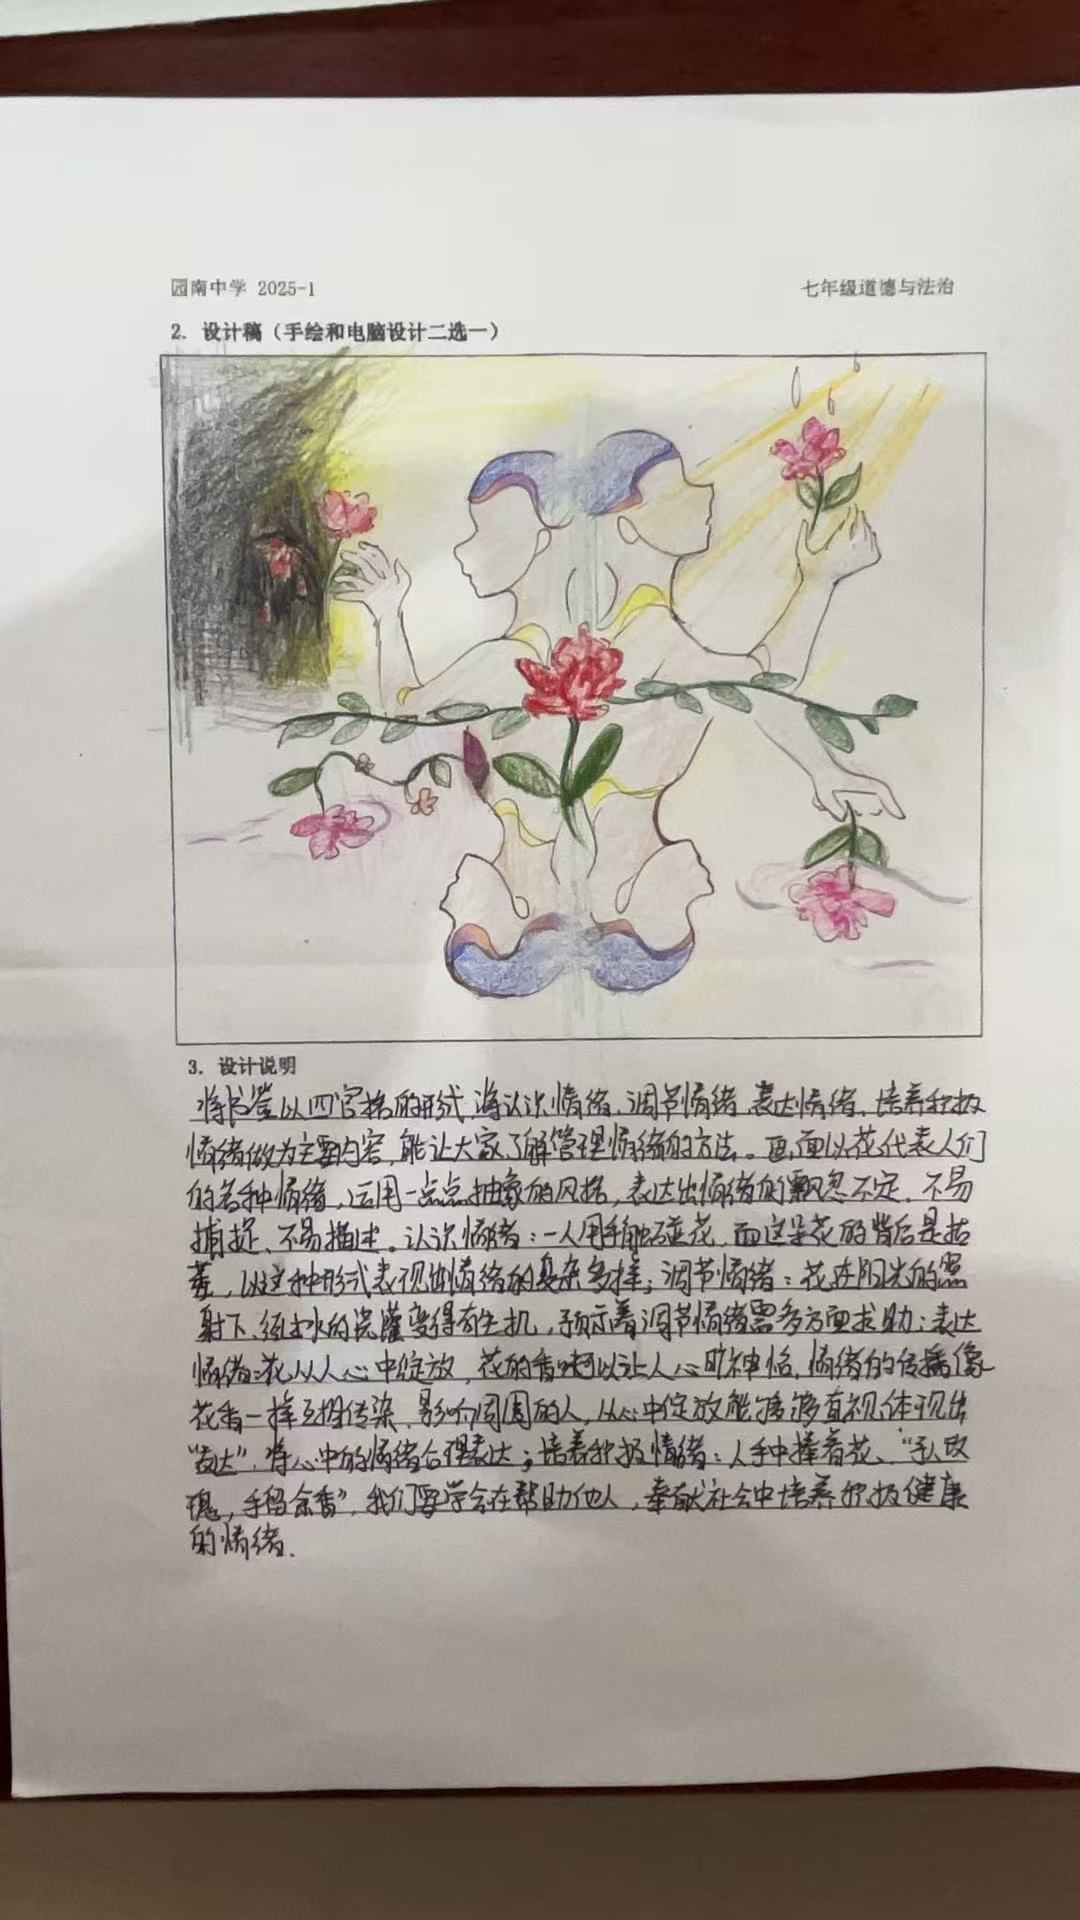 园南中学 2025-1
七年级道德与法治
2. 设计稿（手绘和电脑设计二选一）
3. 设计说明
将书签以四宫格的形式,将认识情绪、调节情绪、表达情绪、培养积极
情绪做为主要内容,能让大家了解管理情绪的方法。画面以花代表人们
的各种情绪,运用一点点抽象的风格,表达出情绪的飘忽不定、不易
捕捉、不易描述。认识情绪:一人用手触碰花,而这朵花的背后是枯
萎,以这种形式表现出情绪的复杂多样;调节情绪:花在阳光的照
射下、经过水的浇灌变得有生机,预示着调节情绪需多方面求助;表达
情绪:花从人心中绽放,花的香味可以让人心旷神怡,情绪的传播像
花香一样互相传染、影响周围的人,从心中绽放能够够直视体现出
“表达”,将心中的情绪合理表达;培养积极情绪:人手中捧着花、“予人玫
瑰,手留余香”,我们要学会在帮助他人,奉献社会中培养积极健康
的情绪.